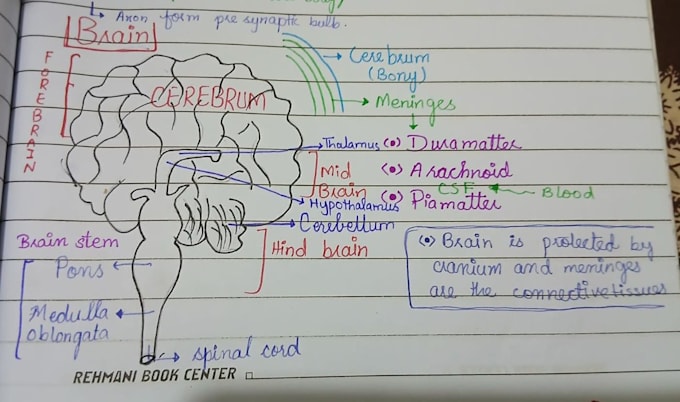 ↳ Axon form pre synaptic bulb.
Brain
FOREBRAIN
CEREBRUM
Cerebrum
(Bony)
Meninges
Thalamus
(•) Duramatter
Mid
Brain
(•) Arachnoid
CSF ← Blood
Hypothalamus
(•) Piamatter
Cerebellum
Hind brain
Brain stem
Pons
Medulla
oblongata
spinal cord
(•) Brain is protected by
cranium and meninges
are the connective tissues
REHMANI BOOK CENTER